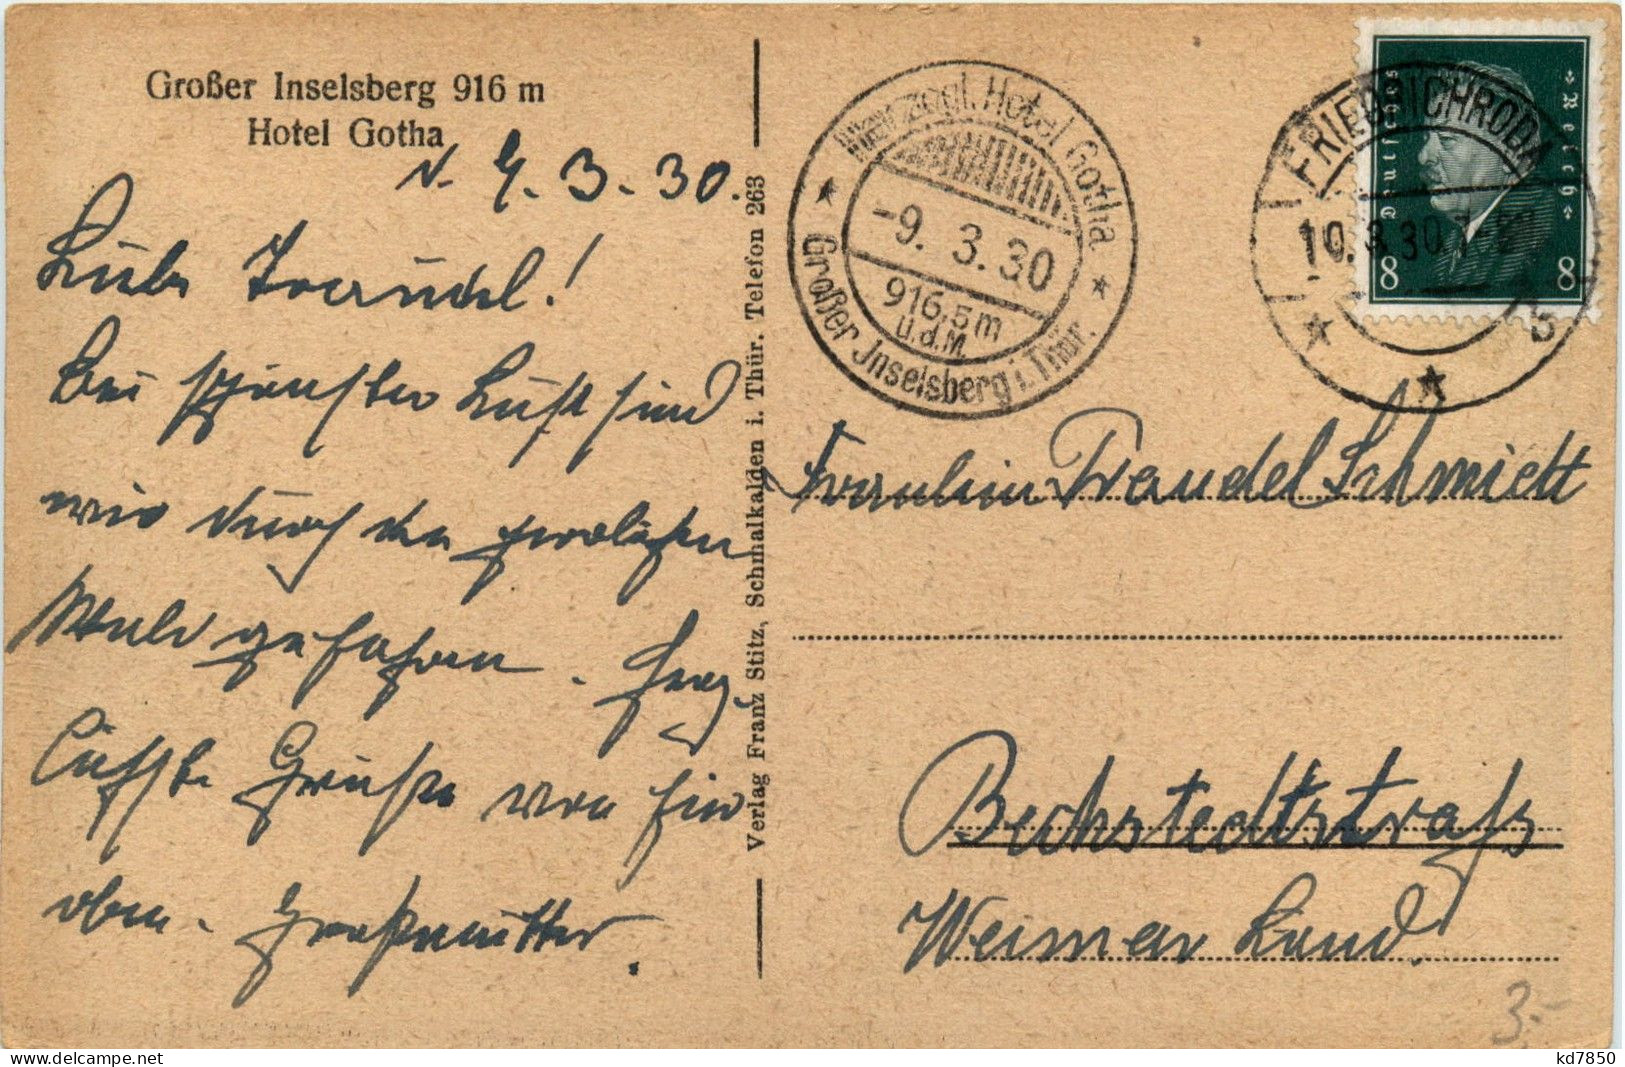 Großer Inselsberg 916 m
Hotel Gotha
d. 9. 3. 30.
Liebe Traudel!
Bei schönster Luft sind
wir durch den herrlichen
Wald gefahren. Herz-
lichste Grüße von hier
oben. Großmutter.
Verlag Franz Stitz, Schmalkalden i. Thür. Telefon 263
Herzogl. Hotel Gotha
-9. 3. 30
916,5 m
ü.d.M.
Großer Jnselsberg i. Thür.
FRIEDRICHRODA
10. 3. 30
b
Deutsches Reich
8 8
Fräulein Traudel Schmidt
Bechstedtstraß
Weimar Land.
3.-
kd7850